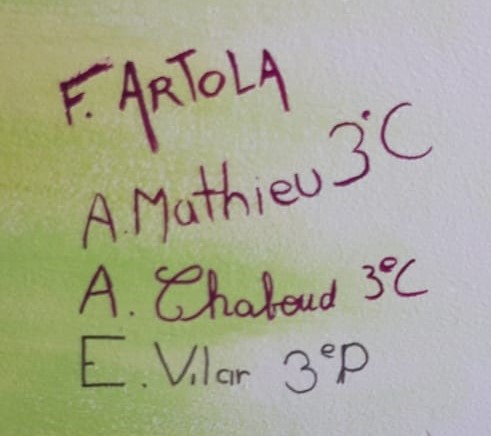 F. ARTOLA
A. Mathieu 3°C
A. Chaboud 3°C
E. Vilar 3eP